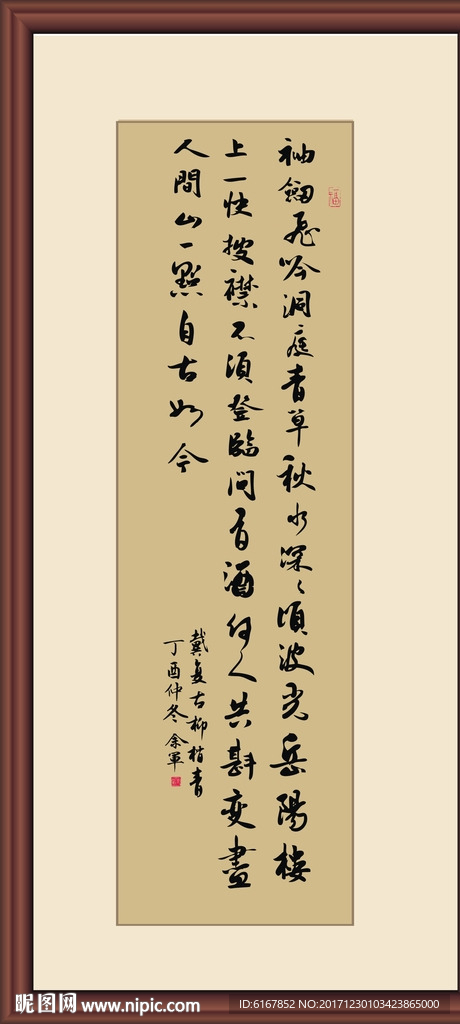 袖劍飛吟洞庭青草秋水深〻頃波光岳陽樓
上一快披襟不須登臨問有酒何人共斟变盡
人間山一點自古如今
戴复古柳梢青
丁酉仲冬 余軍
昵图网 www.nipic.com
ID:6167852 NO:20171230103423865000